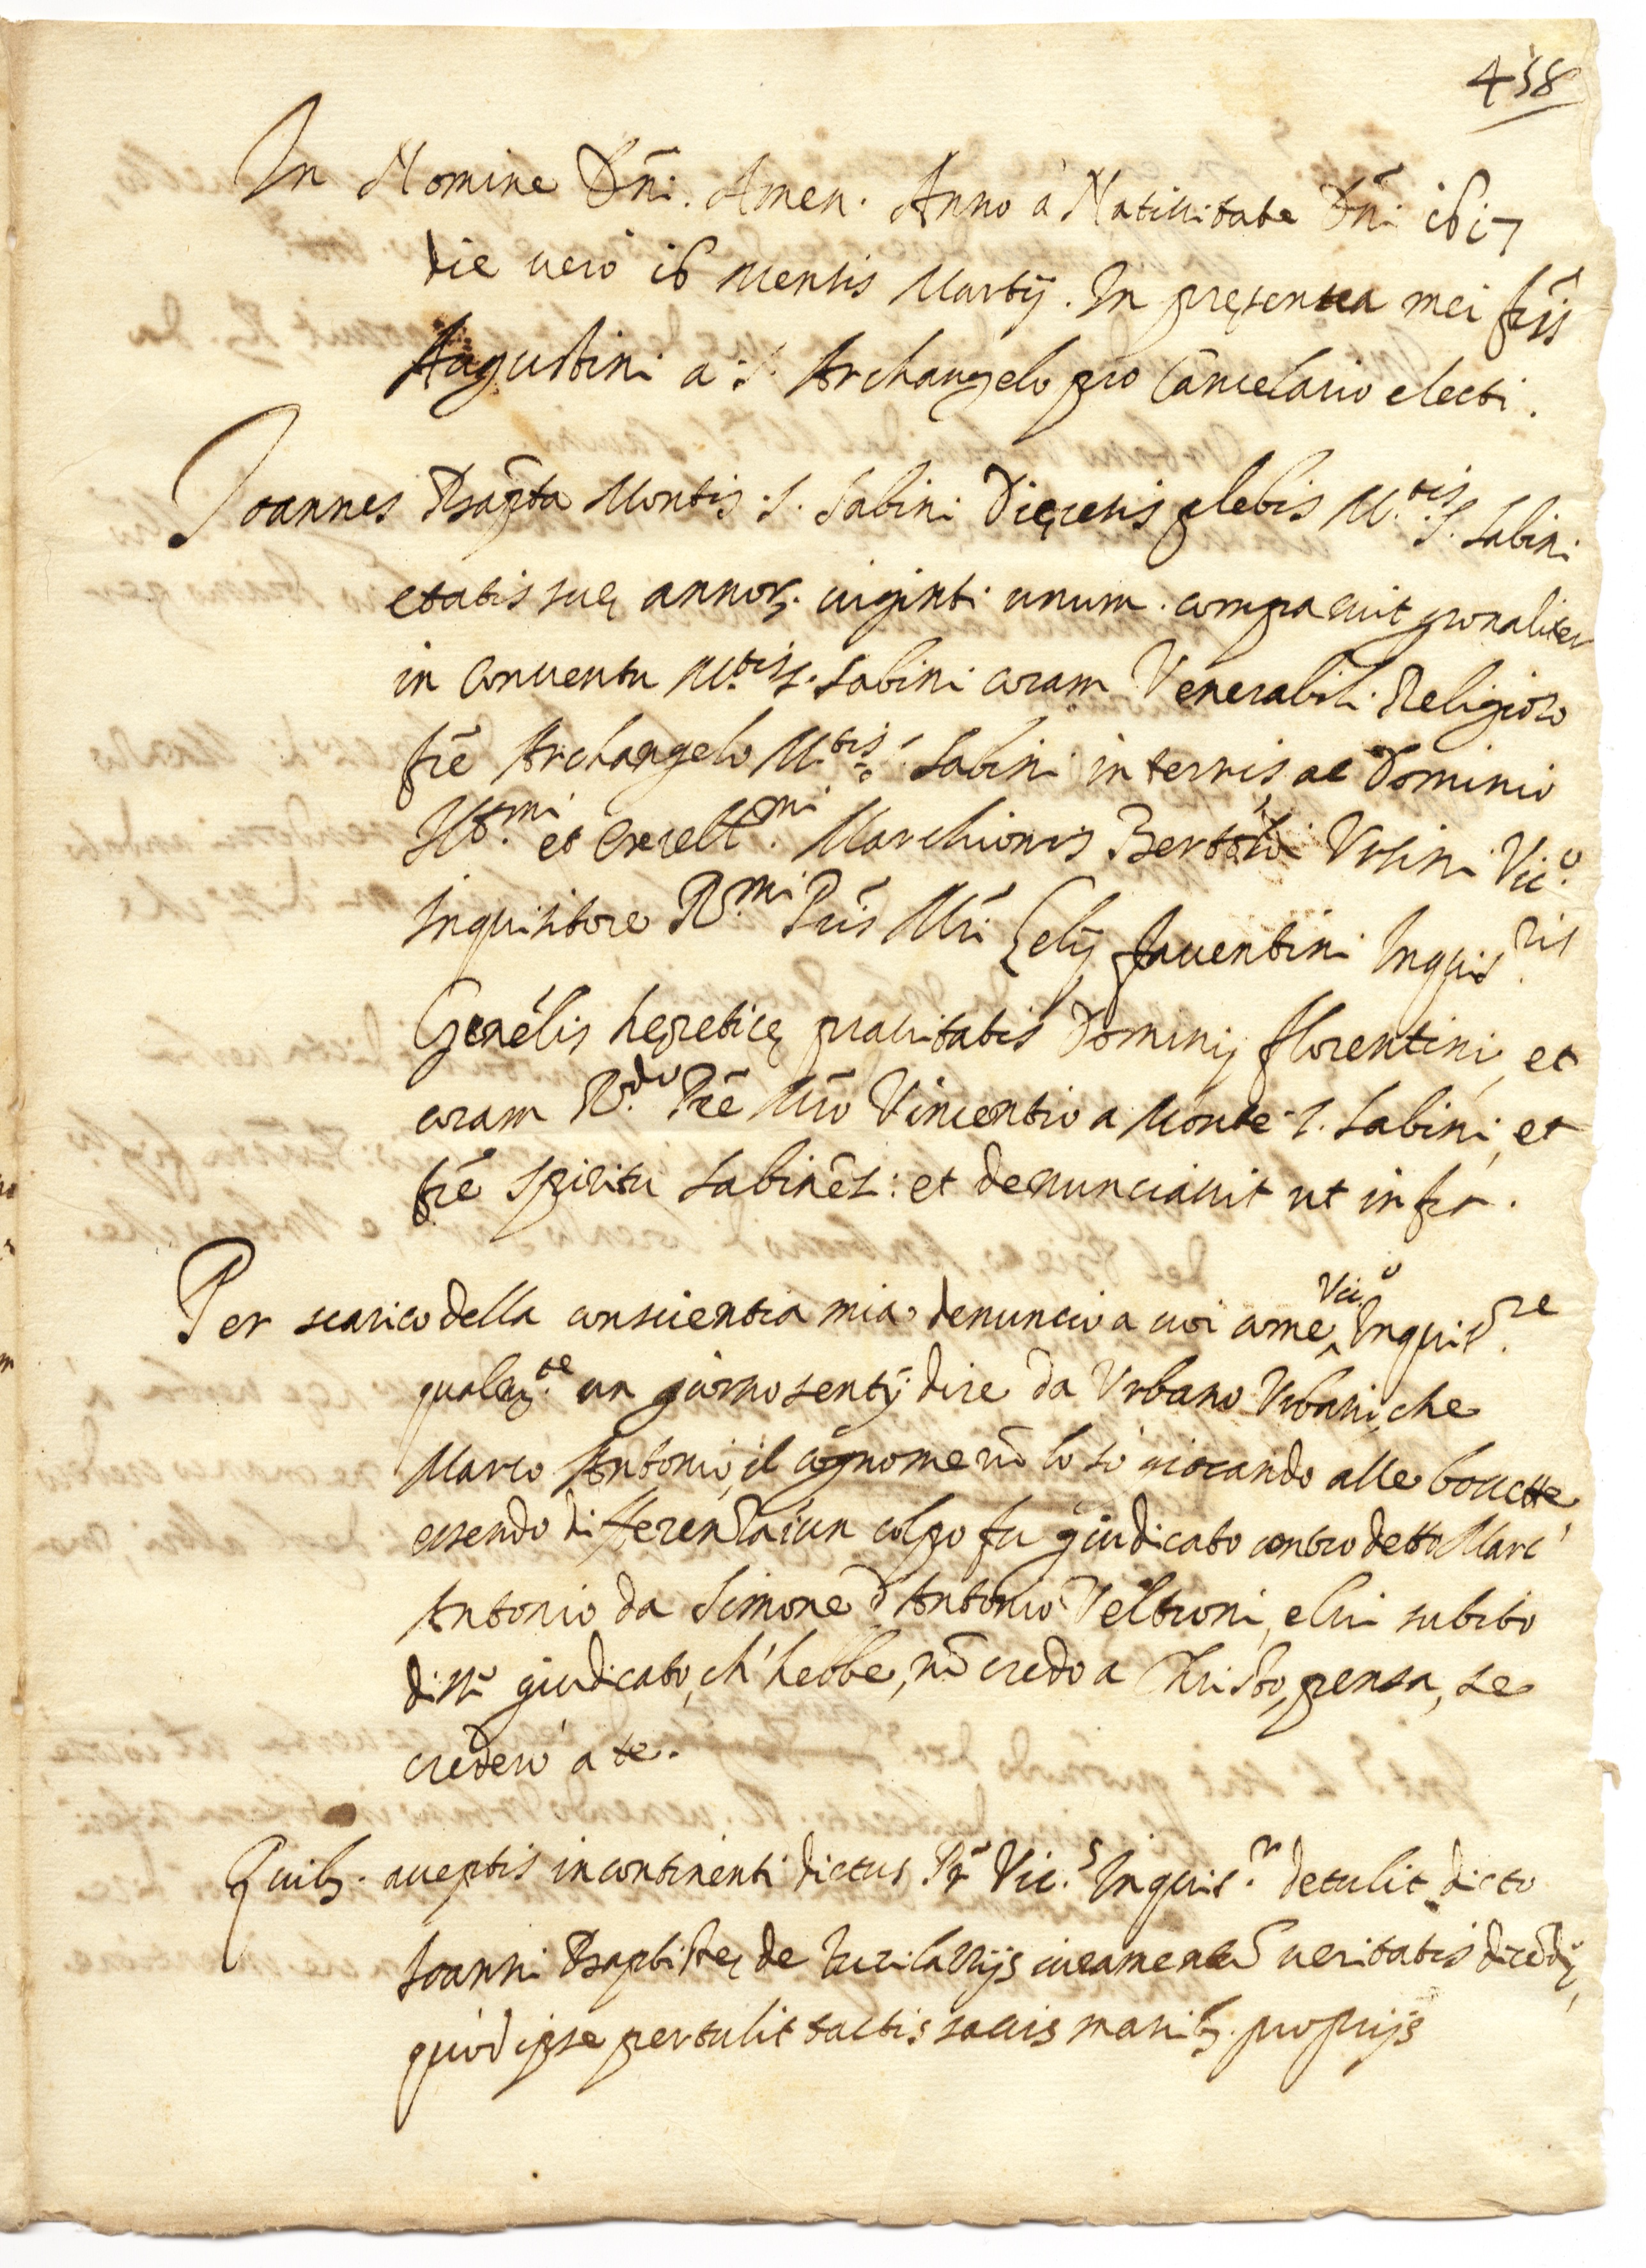 458
In Nomine Dñi. Amen. Anno à Natiuitate Dñi 1617
die uero 16 mensis Martij. In pręsentia mei frĩs
Augustini a S. Archangelo pro Cãncelario electi.
Joannes Bapt̃a Montis S. Sabini plebis M.tis S. Sabini
etatis suę annor. uiginti unum. comparuit p̃sonaliter
in Conuentu M.tis S. Sabini coram Venerabili Religioso
frẽ Archangelo M.tis S. Sabini in terris ac Dominio
Ill.mi et Excell.mi Marchionis Bertoldi Vrsini Vic.o
Inquisitore R.mi Pris̃ Mrĩ Lelij fauentini Inquis.ris
Genẽlis hęreticę prauitatis Dominij florentini, et
coram R.do Prẽ Mrõ Vincentio a Monte S. Sabini, et
frẽ Spiritu Sabinẽs: et denunciauit ut infra.
Per scarico della conscientia mia denuncio a uoi come Vic.o Inquis.re
qualm.te un giorno sentij dire da Vrbano Vrbani, che
Marco Antonio, il cognome nõ lo so giocando alle boccette,
essendo differenza in un colpo fu giudicato contro detto Marc'
Antonio da Simone d'Antonio Veltroni, e lui subito
dissi giudicato, ch' hebbe, nõ credo a Christo, pensa, se
credero' a te.
Quib. acceptis incontinenti dictus Pr̃ Vic.s Inquis.r detulit dicto
Joanni Baptistę de iuramentũ ueritatis dicẽdę,
quod ipse pertulit tactis sacris manib. proprijs